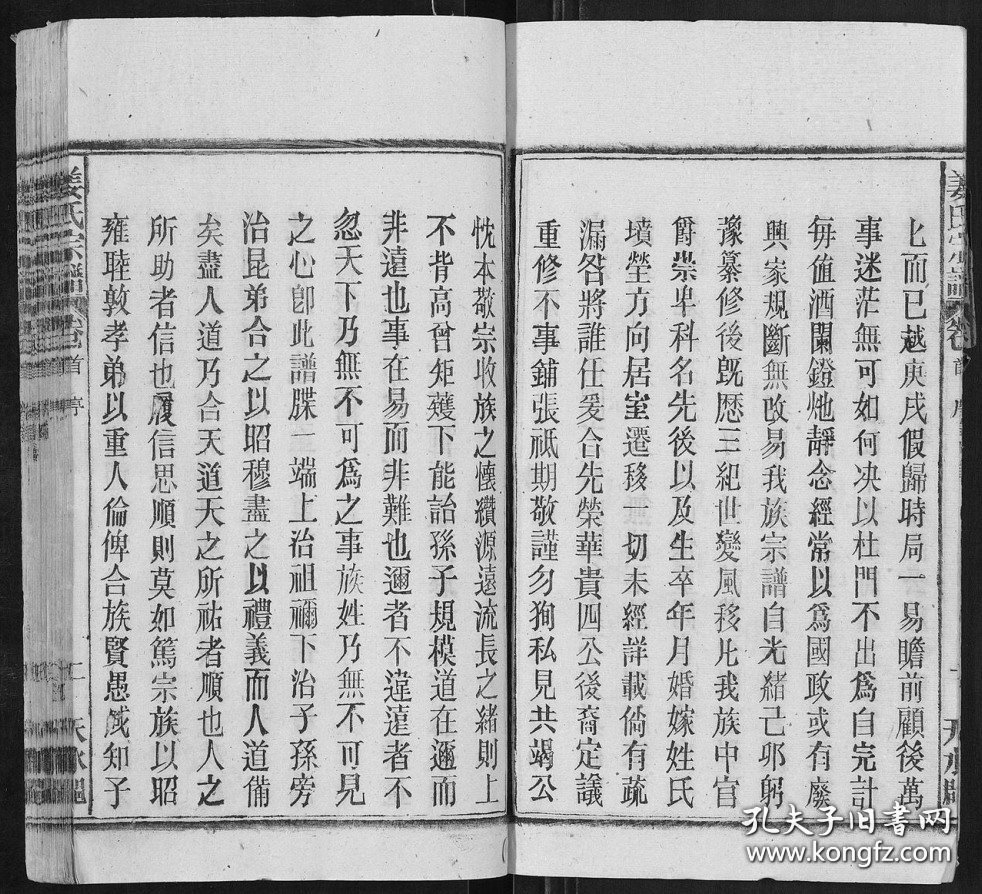 姜氏宗譜 卷首 序
匕而已越庚戌假歸時局一易瞻前顧後萬
事迷茫無可如何决以杜門不出爲自完計
每值酒闌鐙灺靜念經常以爲國政或有廢
興家規斷無改易我族宗譜自光緒己卯躬
豫纂修後旣歷三紀世變風移凡我族中官
爵崇卑科名先後以及生卒年月婚嫁姓氏
墳塋方向居室遷移一切未經詳載倘有疏
漏咎將誰任爰合先榮華貴四公後裔定議
重修不事鋪張祇期敬謹勿狥私見共竭公
忱本敬宗收族之懷纘源遠流長之緒則上
不背高曾矩矱下能詒孫子規模道在邇而
非遠也事在易而非難也邇者不違遠者不
忽天下乃無不可爲之事族姓乃無不可見
之心卽此譜牒一端上治祖禰下治子孫旁
治昆弟合之以昭穆盡之以禮義而人道備
矣盡人道乃合天道天之所祐者順也人之
所助者信也履信思順則莫如篤宗族以昭
雍睦敦孝弟以重人倫俾合族賢愚咸知予
姜氏宗譜 卷首 序 二
孔夫子旧書网
www.kongfz.com